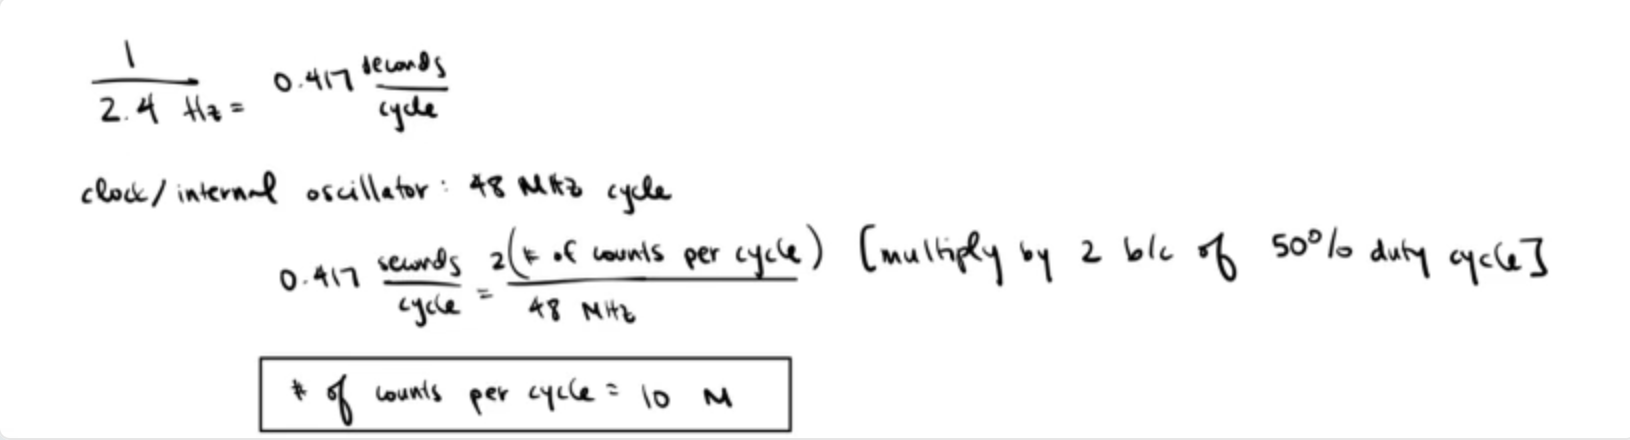 1
2.4 Hz = 0.417 seconds
cycle
clock/internal oscillator: 48 MHz cycle
0.417 seconds = 2(# of counts per cycle) [multiply by 2 b/c of 50% duty cycle]
cycle 48 MHz
# of counts per cycle = 10 M